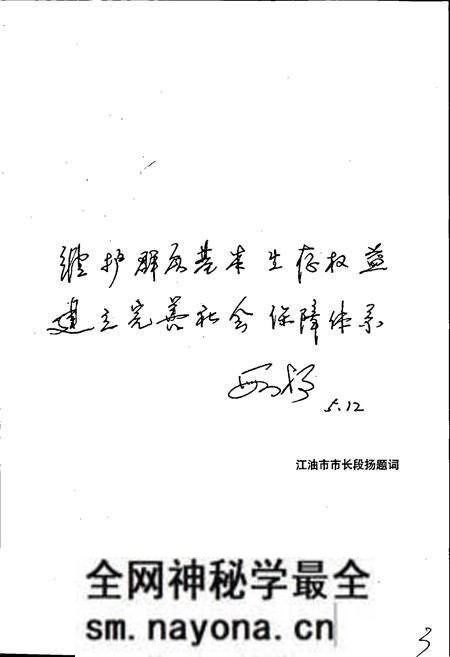 维护群众基本生存权益
建立完善社会保障体系
段扬
5.12
江油市市长段扬题词
全网神秘学最全
sm.nayona.cn
3